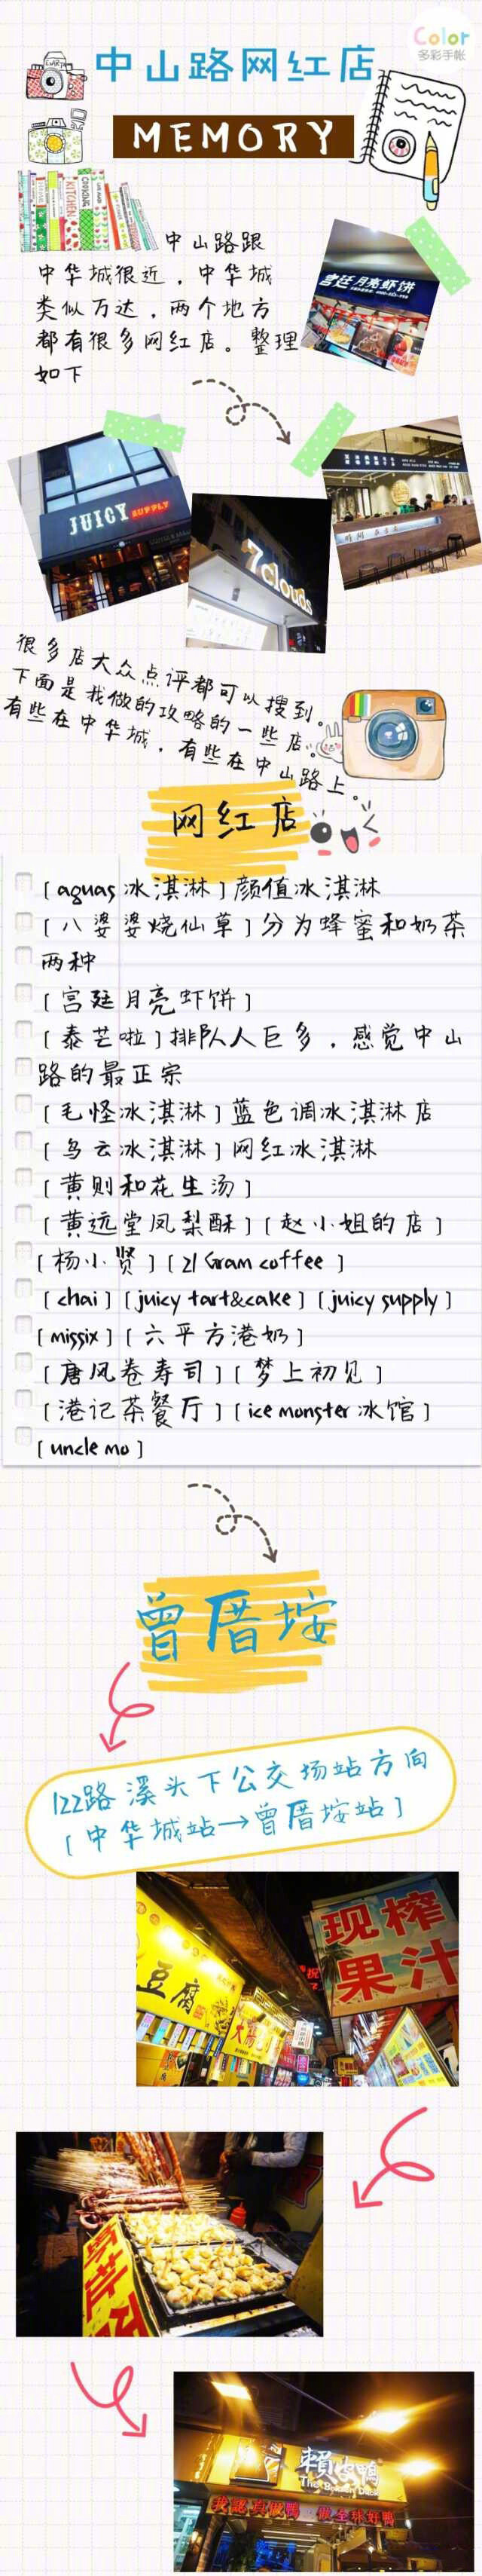 Color
多彩手帐
中山路网红店
MEMORY
中山路跟
中华城很近，中华城
类似万达，两个地方
都有很多网红店。整理
如下
宫廷月亮虾饼
JUICY SUPPLY
7clouds
很多店大众点评都可以搜到。
下面是我做的攻略的一些店。
有些在中华城，有些在中山路上。
网红店
[aguas 冰淇淋]颜值冰淇淋
[八婆婆烧仙草]分为蜂蜜和奶茶
两种
[宫廷月亮虾饼]
[泰芒啦]排队人巨多，感觉中山
路的最正宗
[毛怪冰淇淋]蓝色调冰淇淋店
[乌云冰淇淋]网红冰淇淋
[黄则和花生汤]
[黄远堂凤梨酥][赵小姐的店]
[杨小贤][21 Gram coffee ]
[chai][juicy tart&cake][juicy supply]
[missix][六平方港奶]
[唐风卷寿司][梦上初见]
[港记茶餐厅][ice monster 冰馆]
[uncle mo]
曾厝垵
122路溪头下公交场站方向
[中华城站→曾厝垵站]
现榨
果汁
豆腐
The